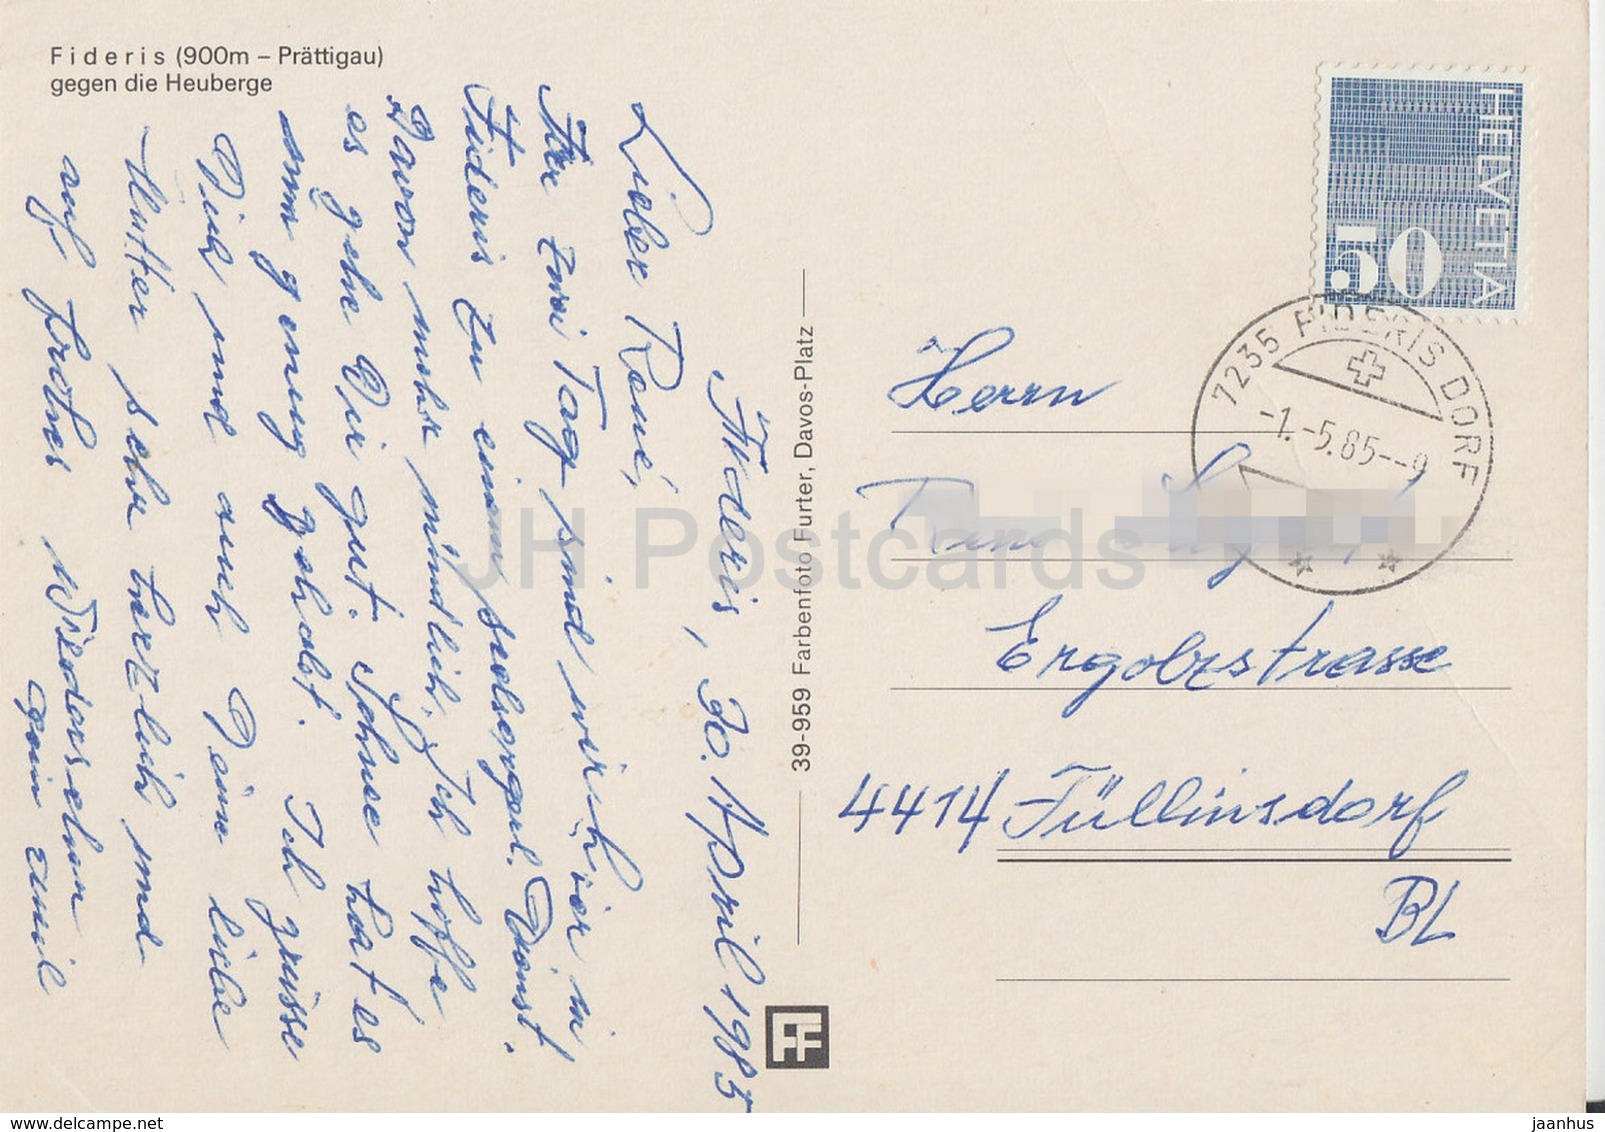 Fideris (900m – Prättigau)
gegen die Heuberge
Fideris, 30. April 1985
Lieber René,
Für zwei Tag sind wir hier in
Fideris zu einem seelsorgerl. Dienst.
Davon mehr mündlich. Ich hoffe
es gehe Dir gut. Schnee hat es
nun genug gehabt. Ich grüsse
Dich und auch Deine liebe
Mutter sehr herzlich und
auf frohes Wiedersehen
39-959 Farbenfoto Furter, Davos-Platz
FF
HELVETIA
50
7235 FIDERIS DORF
-1.-5.85--9
Herrn
Ergolzstrasse
4414 Füllinsdorf
BL
JH Postcards
www.delcampe.net
jaanhus